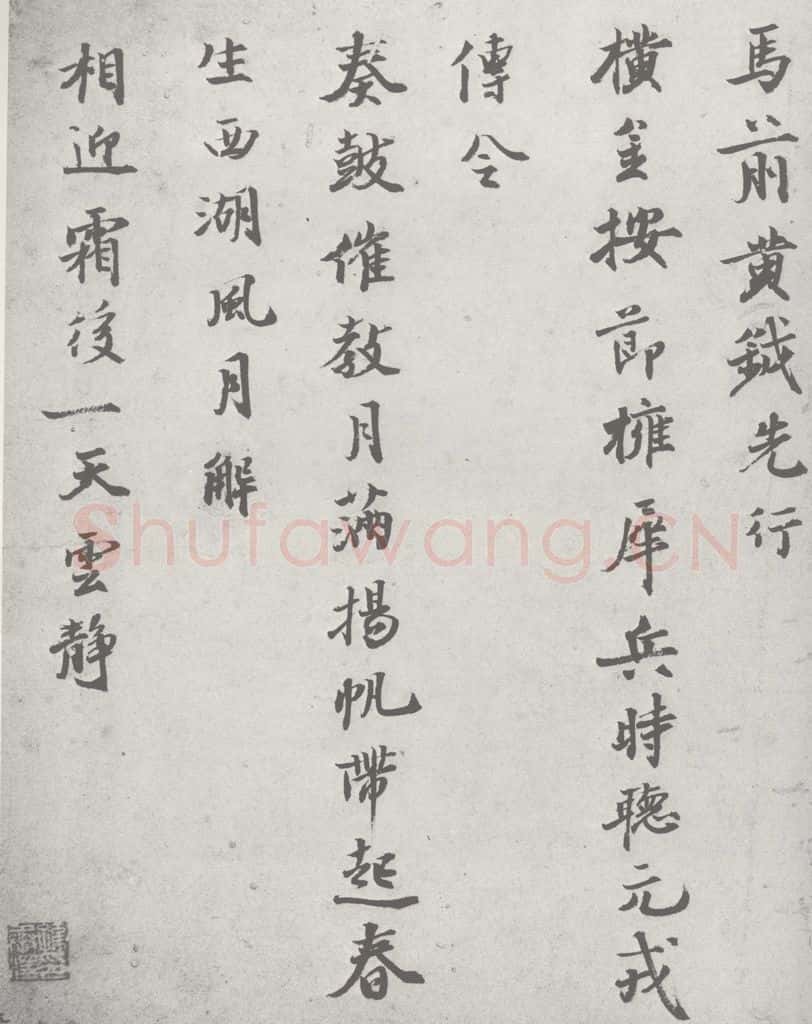 馬前黃鉞先行
橫金按節擁犀兵時聽元戎
傳令
奏鼓催教月滿揚帆帶起春
生西湖風月解
相迎霜後一天雲静
Shufawang.CN